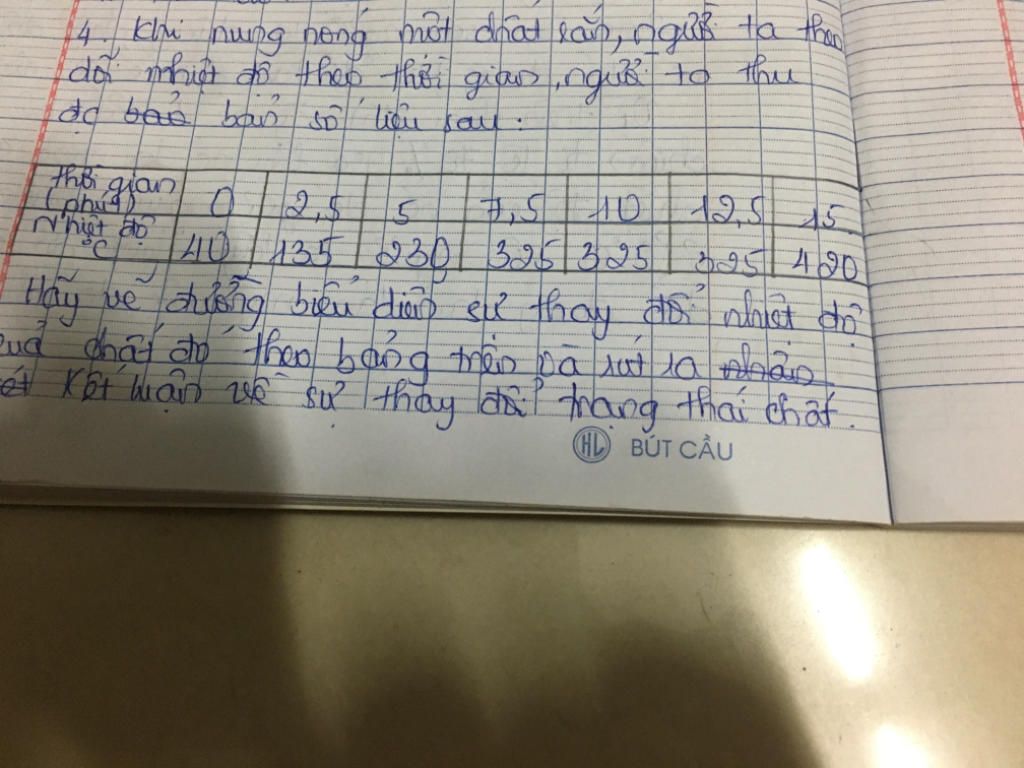 4. Khi nung nóng một chất rắn, người ta theo
dõi nhiệt độ theo thời gian, người ta thu
đc bảo bản số liệu sau:
Thời gian (phút) 0 2,5 5 7,5 10 12,5 15
Nhiệt độ °C 40 135 230 325 325 325 420
Hãy vẽ đường biểu diễn sự thay đổi nhiệt độ
của chất đó theo bảng trên và rút ra nhận
xét kết luận về sự thay đổi trạng thái chất.
HL BÚT CẦU